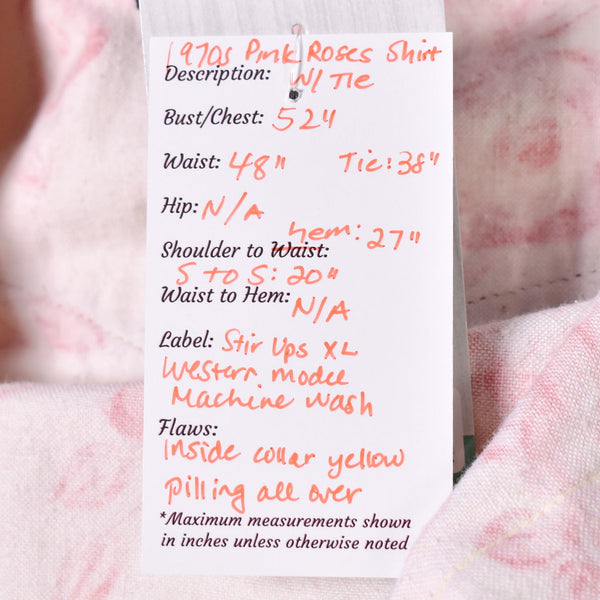 1970s Pink Roses Shirt
Description: W/ Tie
Bust/Chest: 52"
Waist: 48" Tie: 38"
Hip: N/A
Shoulder to Waist: hem: 27"
S to S: 20"
Waist to Hem: N/A
Label: Stir Ups XL
Western model
Machine wash
Flaws:
Inside collar yellow
pilling all over
*Maximum measurements shown
in inches unless otherwise noted